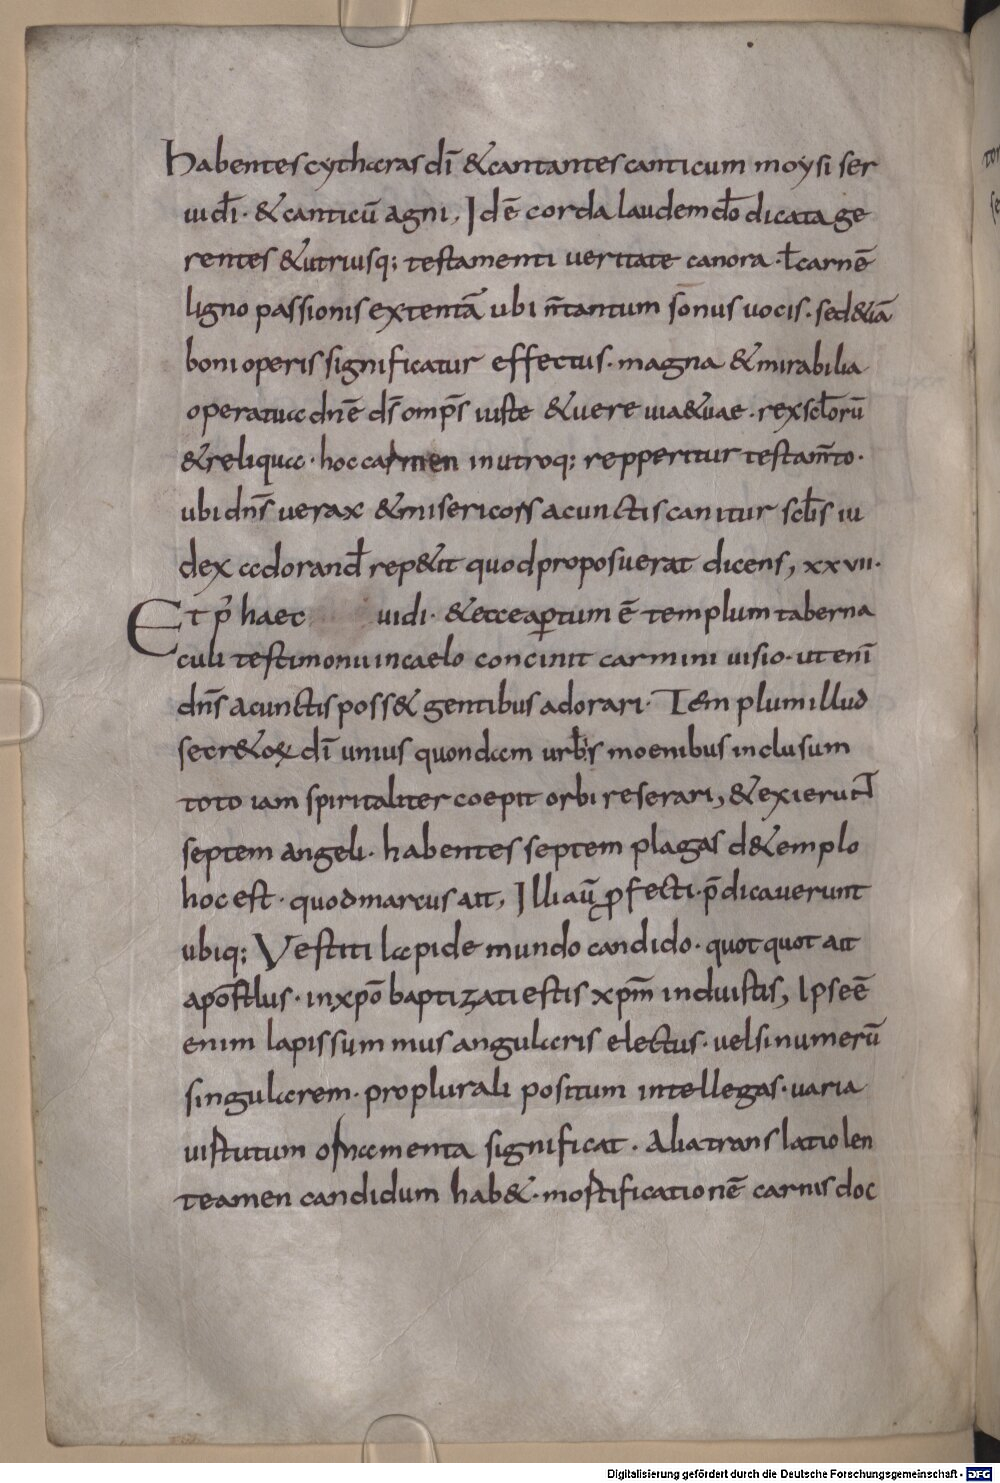 habentes cytharas dī & cantantes canticum moysi ser
ui dī · & canticū agni, Id ē corda laudem dō dicata ge
rentes & utriusq; testamenti ueritate canora · ł carnē
ligno passionis extentā ubi ñ tantum sonus uocis · sed & iā
boni operis significatur effectus · magna & mirabilia
opera tua dnē dś omps̄ iuste & uere uia & uae · rex sc̄lorū
& reliqua · hoc carmen in utroq; repperitur testam̄to ·
ubi dns̄ uerax & misericors a cunctis canitur sc̄lis iu
dex adorand̄ rep&it quod proposuerat dicens, xxvii ·
Et p̄ haec uidi · & ecce apertum ē templum taberna
culi testimonii in caelo concinit carmini uisio · ut enī
dns̄ a cunctis poss& gentibus adorari · Templum illud
secr&oꝝ dī unius quondam urbis moenibus inclusum
toto iam spiritaliter coepit orbi reserari, & exierunt
septem angeli · habentes septem plagas d& emplo
hoc est · quod marcus ait, Illi aū ꝓfecti · p̄dicauerunt
ubiq; Vestiti lapide mundo candido · quotquot ait
apostlus · in xp̄o baptizati estis xpm̄ induistis, Ipse ē
enim lapis summus angularis electus · uel si numerū
singularem · pro plurali positum intellegas · uaria
uirtutum ornamenta significat · Alia translatio len
teamen candidum hab& · mortificationē carnis doc
Digitalisierung gefördert durch die Deutsche Forschungsgemeinschaft - DFG